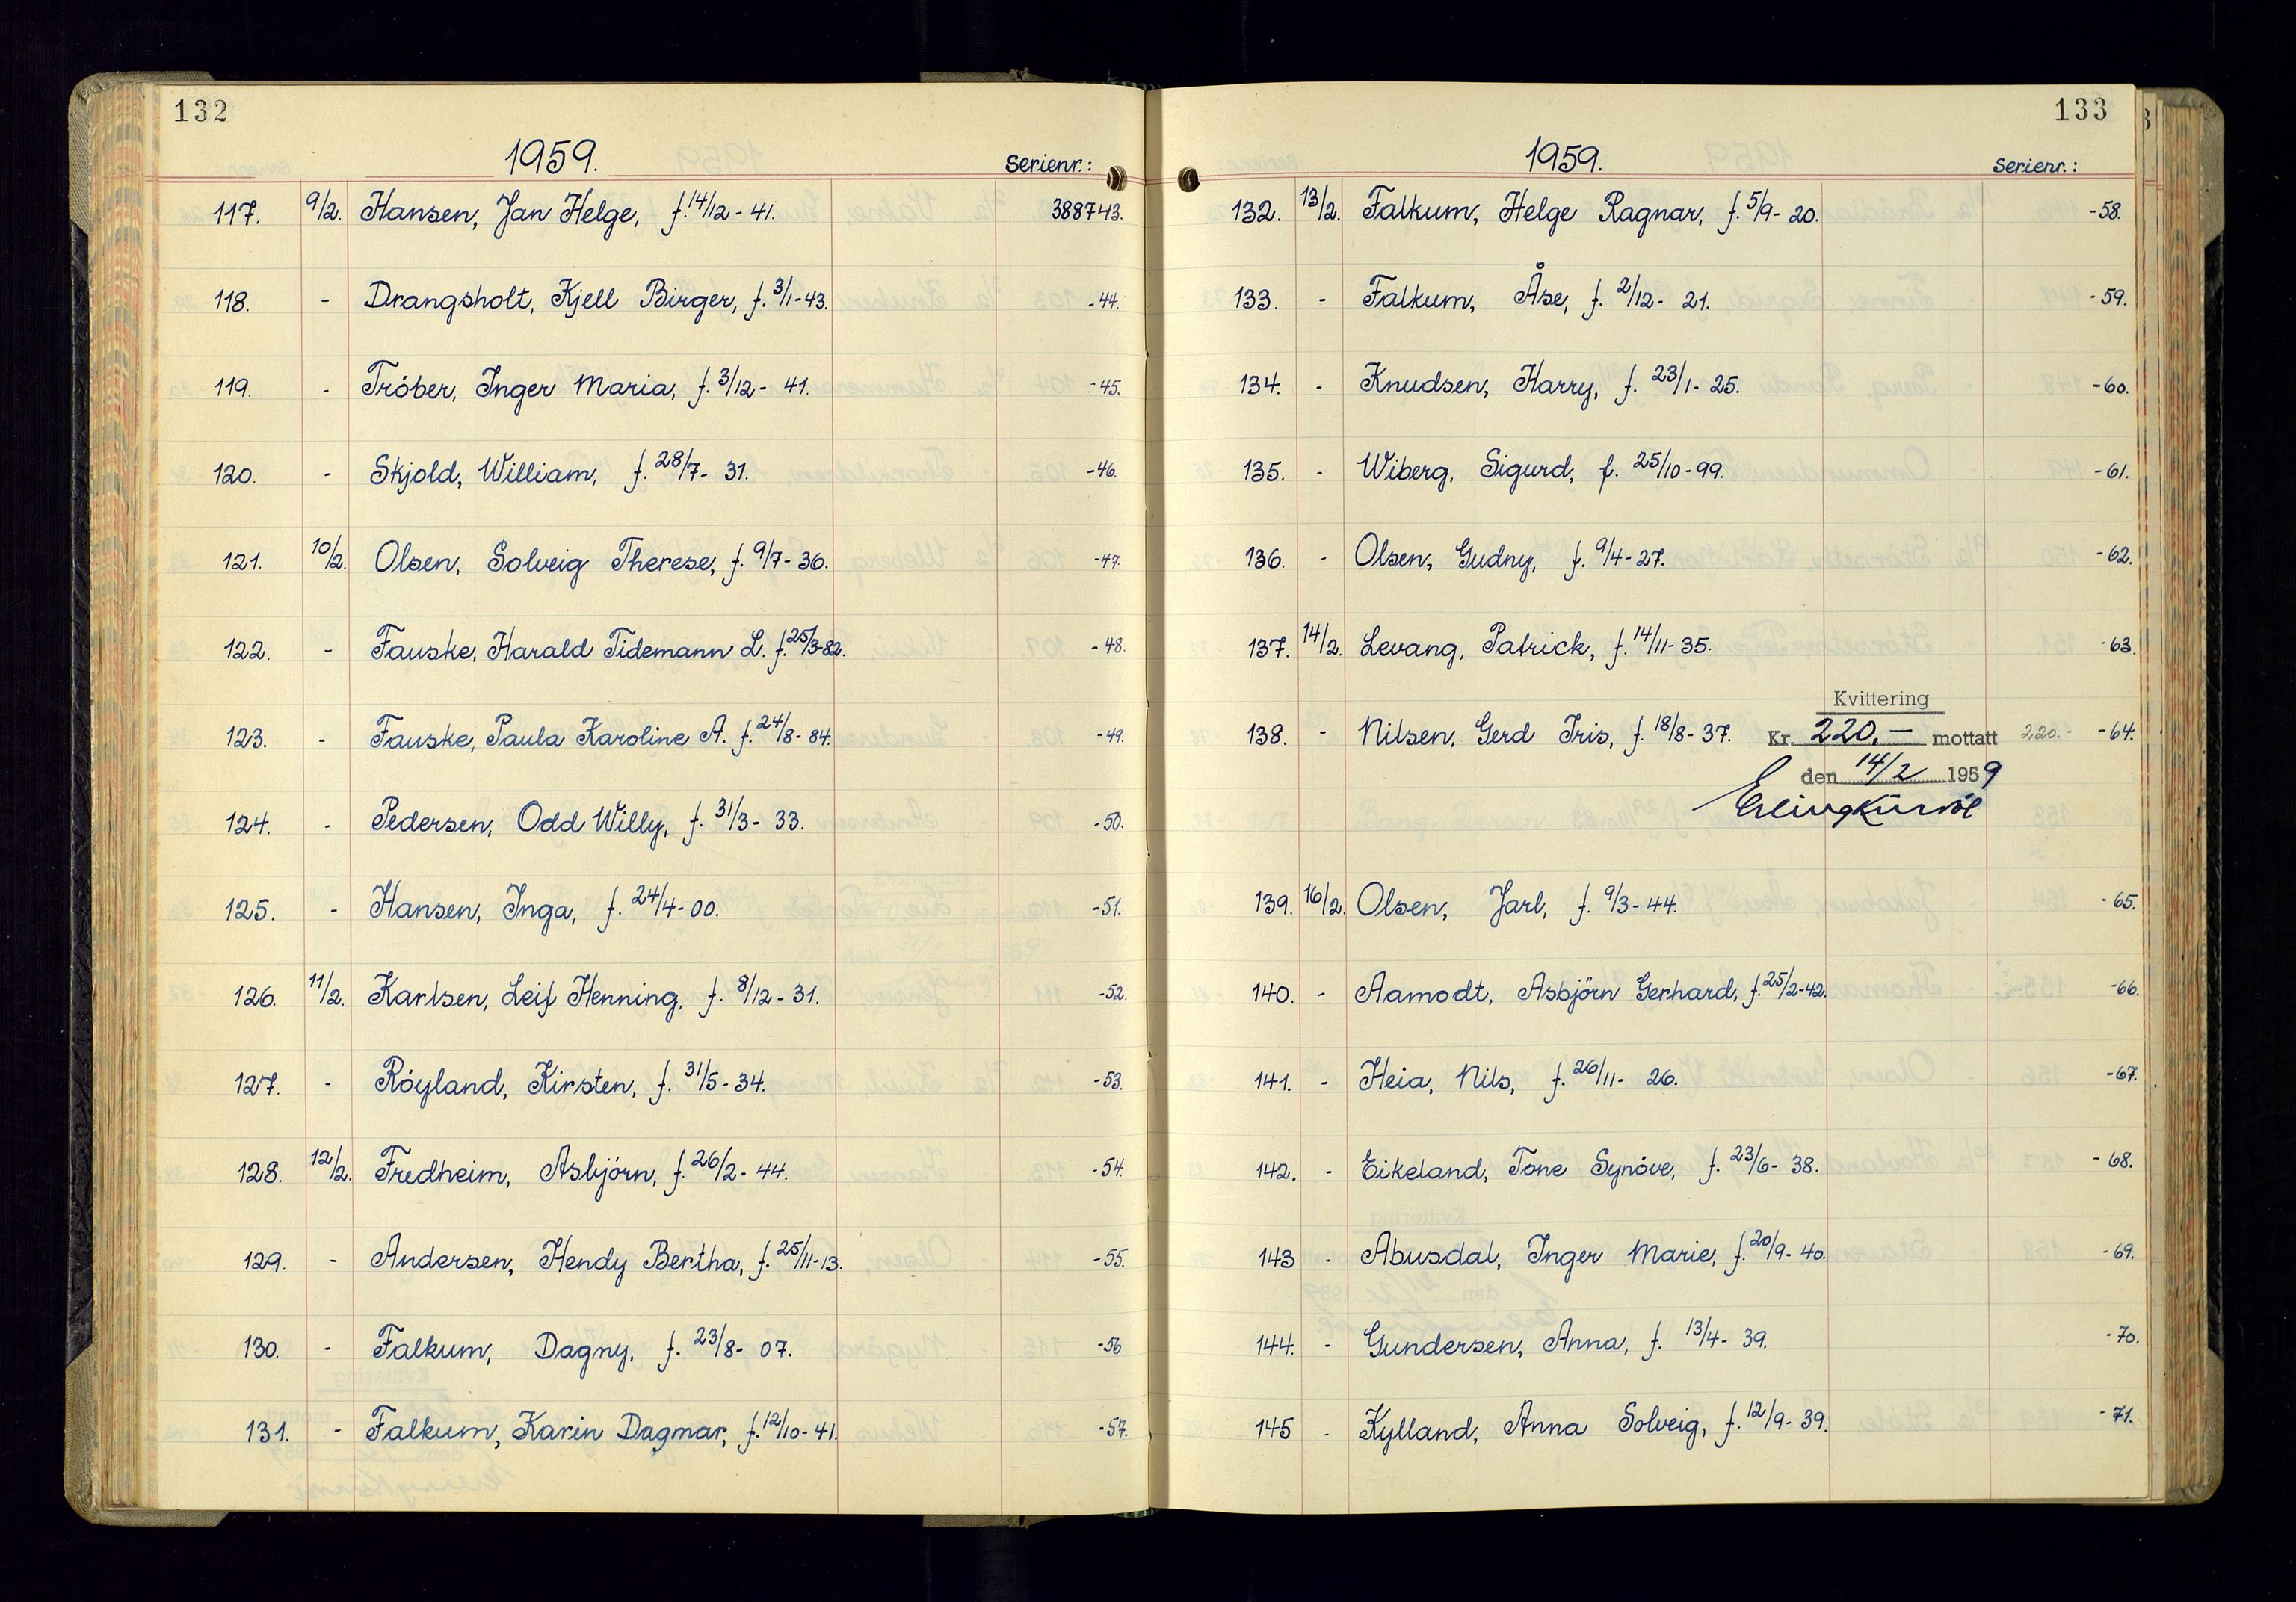 132
1959. Serienr.:
117. 9/2. Hansen, Jan Helge, f. 14/12 - 41. 388743.
118. - Drangsholt, Kjell Birger, f. 3/1 - 43. -44.
119. - Tróber, Inger Maria, f. 3/12 - 41. -45.
120. - Skjold, William, f. 28/7 - 31. -46.
121. 10/2. Olsen, Solveig Therese, f. 9/7 - 36. -47.
122. - Fauske, Harald Tidemann L. f. 25/3-82. -48.
123. - Fauske, Paula Karoline A. f. 24/8 - 84. -49.
124. - Pedersen, Odd Willy, f. 31/3 - 33. -50.
125. - Hansen, Inga, f. 24/4 - 00. -51.
126. 11/2. Karlsen, Leif Henning, f. 8/12 - 31. -52.
127. - Róyland, Kirsten, f. 31/5 - 34. -53.
128. 12/2. Fredheim, Asbjórn, f. 26/2 - 44. -54.
129. - Andersen, Hendy Bertha, f. 25/11-13. -55.
130. - Falkum, Dagny, f. 23/8 - 07. -56
131. - Falkum, Karin Dagmar, f. 12/10 - 41. -57.
133
1959. Serienr.:
132. 13/2. Falkum, Helge Ragnar, f. 5/9 - 20. -58.
133. - Falkum, Åse, f. 2/12 - 21. -59.
134. - Knudsen, Harry, f. 23/1 - 25. -60.
135. - Wiberg, Sigurd, f. 25/10 - 99. -61.
136. - Olsen, Gudny, f. 9/4 - 27. -62.
137. 14/2. Levang, Patrick, f. 14/11 - 35. -63.
Kvittering
138. - Nilsen, Gerd Iris, f. 18/8 - 37. Kr. 220.- mottatt 220.- -64.
den 14/2 1959
Erling
139. 16/2. Olsen, Jarl, f. 9/3 - 44. -65.
140. - Aamodt, Asbjörn Gerhard, f. 25/2-42. -66.
141. - Heia, Nils, f. 26/11 - 26. -67.
142. - Eikeland, Tone Synóve, f. 23/6 - 38. -68.
143 - Abusdal, Inger Marie, f. 20/9 - 40. -69.
144. - Gundersen, Anna, f. 13/4 - 39. -70.
145 - Kylland, Anna Solveig, f. 12/9 - 39. -71.